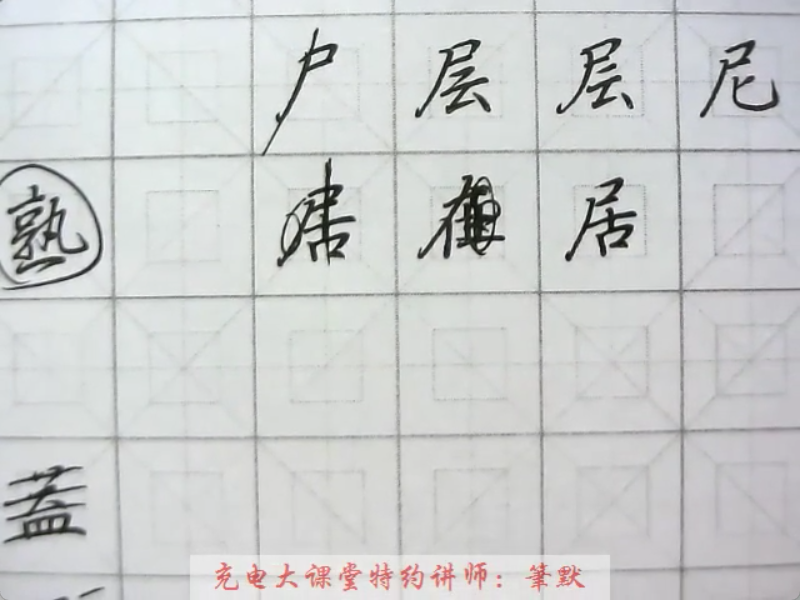 尸 层 层 尼
熟 居
盖
充电大课堂特约讲师：筆默